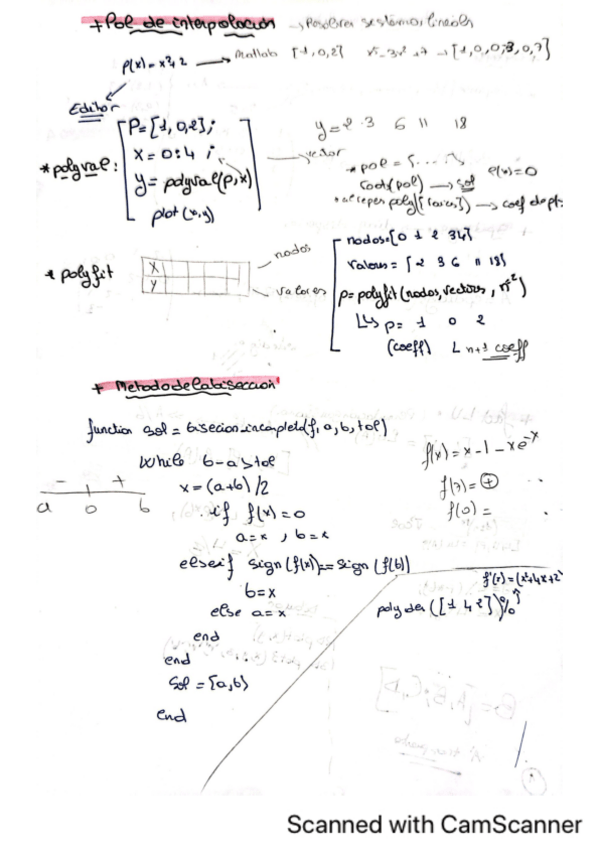 + Pol de interpolación → Resolver sistemas lineales
p(x) = x²+2 → Matlab [1,0,2]
→ [1,0,0,3,0,7]
Editor
* polyval:
P=[1,0,2];
x = 0:4;
y = polyval(p,x)
plot(x,y)
→ vector
y = 2 3 6 11 18
* pol = [....]
roots(pol) → sol
e(x)=0
poly([raices]) → coef de pt.
* polyfit
x
y
nodos
valores
nodos=[0 1 2 3 4]
Valores = [2 3 6 11 18]
p= polyfit(nodos, vectores, n)
↳ p= 1 0 2
(coeff) n+1 coeff
+ Metodo de la biseccion
function sol = biseccion_incompleto(f,a,b,tol)
while b-a>tol
x = (a+b)/2
if f(x)=0
a=x, b=x
elseif sign(f(x))==sign(f(b))
b=x
else a=x
end
end
sol = [a,b]
end
- +
a 0 b
f(x) = x-1-xe^-x
f(7)= ⊕
f(0) =
polyder([1 4 2])%
Scanned with CamScanner